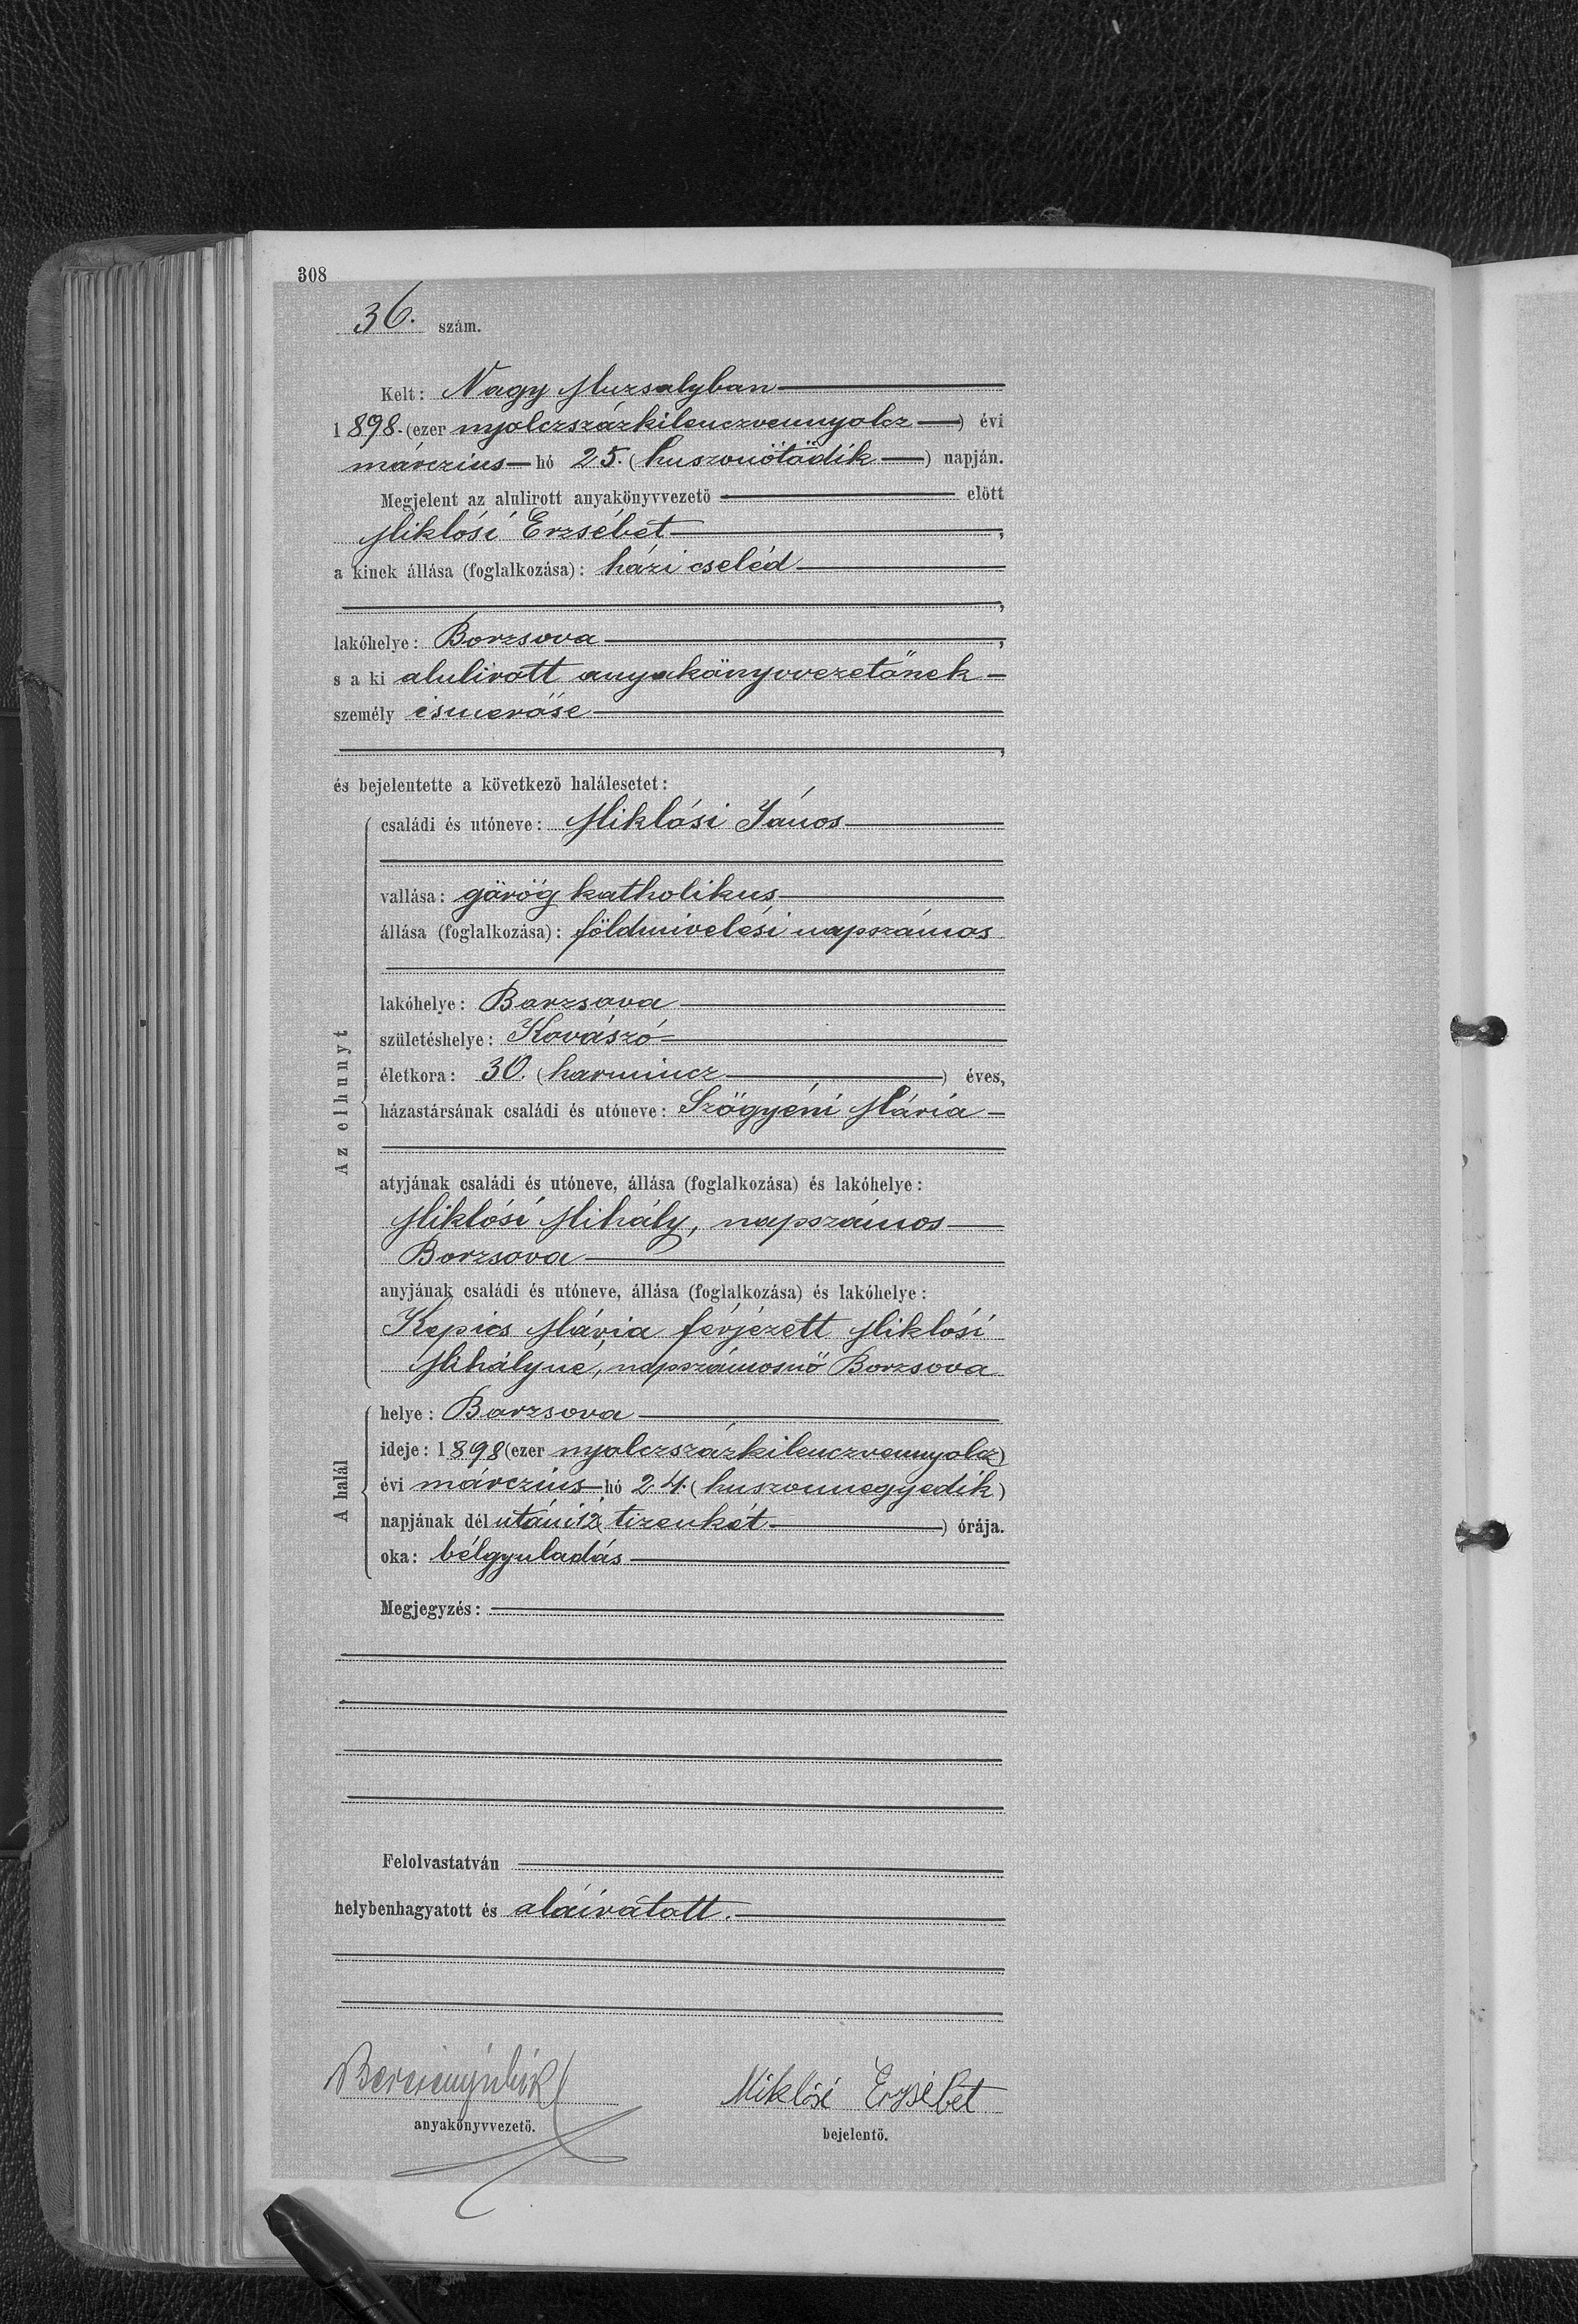 308
36. szám.
Kelt: Nagy Muzsalyban
1898. (ezer nyolczszázkilenczvennyolcz) évi
márczius hó 25. (huszonötödik) napján.
Megjelent az alulirott anyakönyvvezető előtt
Miklósi Erzsébet,
a kinek állása (foglalkozása): házi cseléd
,
lakóhelye: Borzsova,
s a ki alulirott anyakönyvvezetőnek
személy ismerőse
,
és bejelentette a következő halálesetet:
Az elhunyt
családi és utóneve: Miklósi János
vallása: görög katholikus
állása (foglalkozása): földmivelési napszámos
lakóhelye: Borzsova
születéshelye: Kovászó
életkora: 30. (harmincz) éves,
házastársának családi és utóneve: Szögyéni Mária
atyjának családi és utóneve, állása (foglalkozása) és lakóhelye:
Miklósi Mihály, napszámos
Borzsova
anyjának családi és utóneve, állása (foglalkozása) és lakóhelye:
Kepics Mária férjezett Miklósi
Mihályné, napszámosnő Borzsova
A halál
helye: Borzsova
ideje: 1898 (ezer nyolczszázkilenczvennyolcz)
évi márczius hó 24. (huszonnegyedik)
napjának délutáni 12 (tizenkét) órája.
oka: bélgyuladás
Megjegyzés:
Felolvastatván
helybenhagyatott és aláiratott.
Miklósi Erzsébet
anyakönyvvezető.
bejelentő.